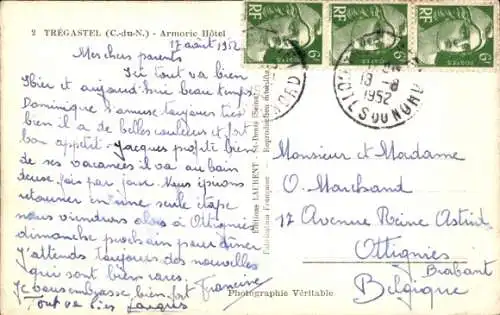 2 TRÉGASTEL (C.-du-N.) - Armoric Hôtel
17 août 1952
Mes chers parents
Ici tout va bien
Hier et aujourd'hui beau temps
Dominique s'amuse toujours très
bien il a de belles couleurs et fort
bon appétit - Jacques profite bien
de ses vacances il va au bain
deux fois par jour. Nous
retourner en une seule étape
nous viendrons alors à Ottignies
dimanche prochain pour dîner
J'attends toujours des nouvelles
qui sont bien rares.
Je vous embrasse bien fort Francine
Tout va bien Jacques
Editions LAURENT - St-Denis (Seine)
Fabrication Française - Reproduction interdite
Photographie Véritable
RF
6f
POSTES
RF
6f
RF
6f
18-8
1952
CÔTES DU NORD
Monsieur et Madame
O. Marchand
17 Avenue Reine Astrid
Ottignies
Brabant
Belgique